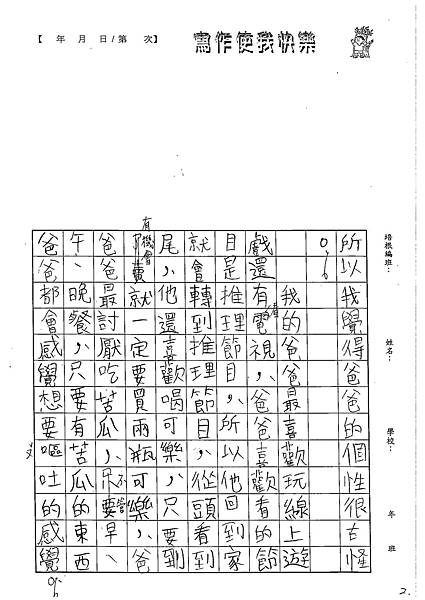 【　年　月　日/第　次】
寫作使我快樂
培根編班：
姓名：
學校：
年　班
所以我覺得爸爸的個性很古怪
。
我的爸爸最喜歡玩線上遊
戲還有電視，爸爸喜歡看的節
目是推理節目，所以他回到家
就會轉到推理節目，從頭看到
尾，他還喜歡喝可樂，只要到
有機會
就一定要買兩瓶可樂，爸
爸爸最討厭吃苦瓜，不管早
午、晚餐，只要有苦瓜的東西
爸爸都會感覺想要嘔吐的感覺
。
2.